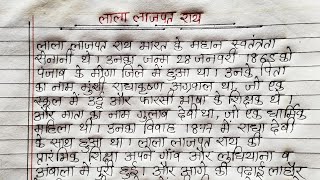 लाला लाजपत राय
लाला लाजपत राय भारत के महान स्वतंत्रता
सेनानी थे। उनका जन्म 28 जनवरी 1865 को
पंजाब के मोगा जिले में हुआ था। उनके पिता
का नाम मुंशी राधाकृष्ण अग्रवाल था, जो एक
स्कूल में उर्दू और फारसी भाषा के शिक्षक थे।
और माता का नाम गुलाब देवी था, जो एक धार्मिक
महिला थी। उनका विवाह 1877 में राधा देवी
के साथ हुआ था। लाला लाजपत राय की
प्रारंभिक शिक्षा अपने गाँव और लुधियाना व
अंबाला में पूरी हुई। और आगे की पढ़ाई लाहौर